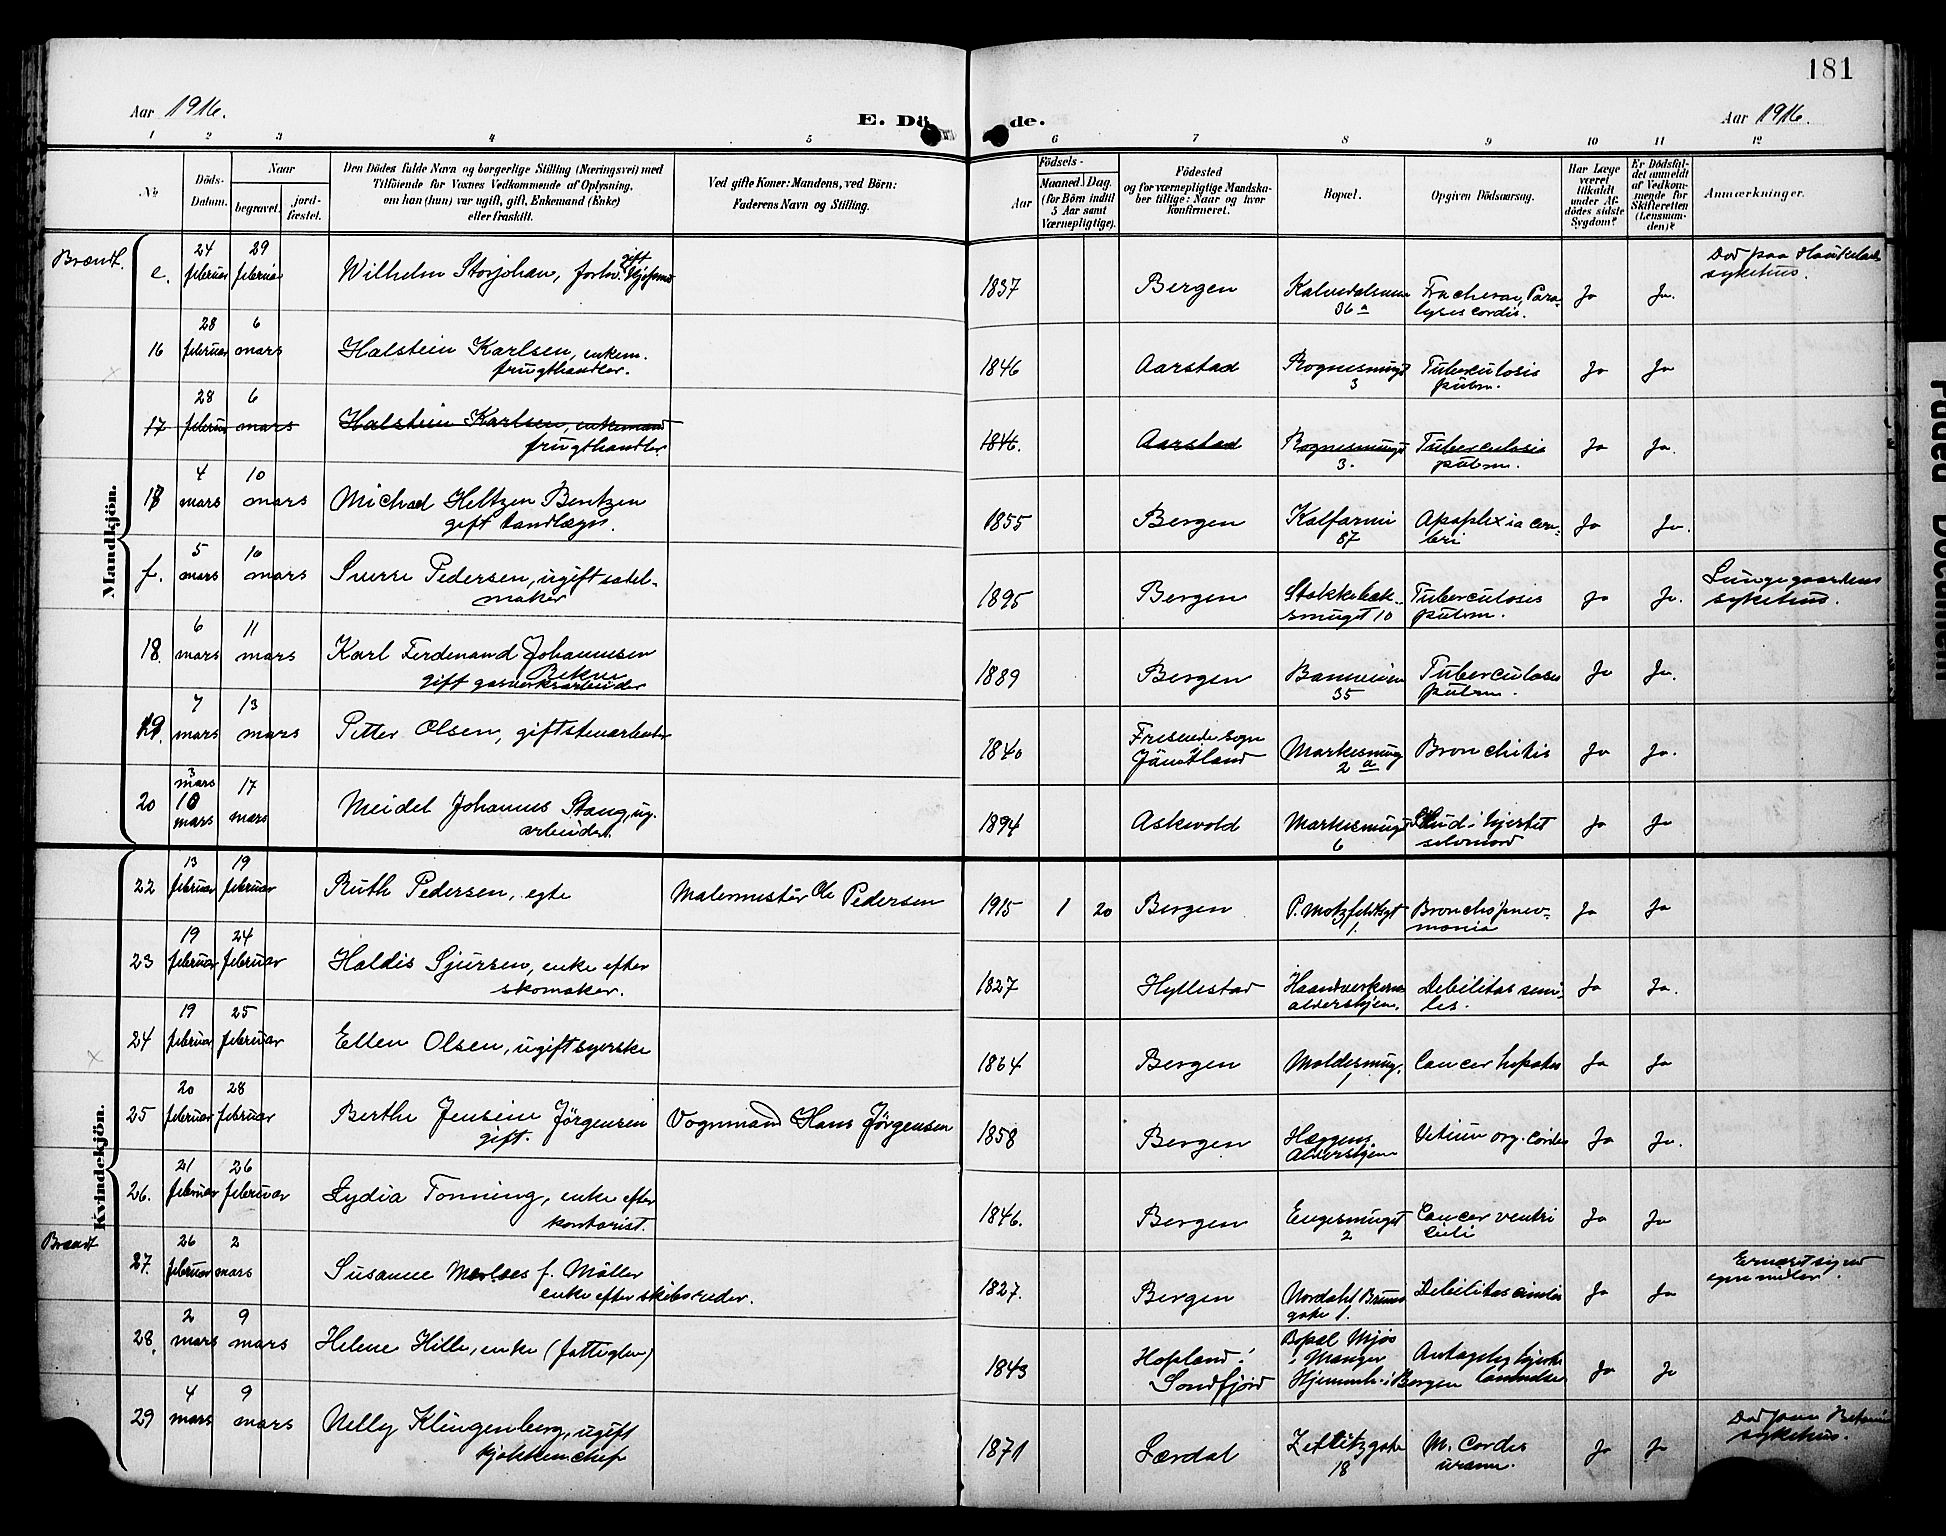 181
Aar 1916.
E. Dö de.
Aar 1916.
1 2 3 4 5 6 7 8 9 10 11 12
No
Döds-Datum.
Naar
begravet.
jord-fæstet.
Den Dödes fulde Navn og borgerlige Stilling (Næringsvei) med
Tilföiende for Voxnes Vedkommende af Oplysning,
om han (hun) var ugift, gift, Enkemand (Enke)
eller fraskilt.
Ved gifte Koner: Mandens, ved Börn:
Faderens Navn og Stilling.
Födsels-
Aar
Maaned. Dag.
(for Börn indtil
5 Aar samt
Værnepligtige).
Födested
og for værnepligtige Mandska-
ber tillige: Naar og hvor
konfirmeret.
Bopæl.
Opgiven Dödsaarsag.
Har Læge
været
tilkaldt
under Af-
dödes sidste
Sygdom?
Er Dödsfal-
det anmeldt
af Vedkom-
mende for
Skifteretten
(Lensman-
den)?
Anmærkninger.
Mandkjön.
Brændt.
e. 24 februar 29 februar Wilhelm Storjohan, forhv. gift 1837 Bergen 36 a Paralyses cordis. Ja Ja. Död paa Haukelands sykehus.
16 28 februar 6 mars Halstein Karlsen, enkem. frugthandler. 1846 Aarstad Rognesmuget 3 Tuberculosis pulm. Ja Ja
17 28 februar 6 mars Halstein Karlsen, enkemand frugthandler 1846. Aarstad Rognesmuget 3. Tuberculosis pulm. Ja Ja.
18 4 mars 10 mars Michael Heltzen Bentzen gift tandlæge. 1855 Bergen Kalfarvei 87 Apoplexia cerebri Ja Ja.
f. 5 mars 10 mars Sverre Pedersen, ugift satelmaker 1895 Bergen Stokkebæksmuget 10 Tuberculosis pulm. Ja Ja. Lungegaardens sykehus.
18. 6 mars 11 mars Karl Ferdinand Johannesen gift gasverksarbeider 1889 Bergen 35 Tuberculosis pulm. Ja Ja.
19. 7 mars 13 mars Petter Olsen, gift stenarbeider 1840 sogn Jämtland Markesmug 2 a Bronchitis Ja Ja.
20 3 mars 10 mars 17 mars Meidel Johannes Stang, ug. arbeider. 1894 Askvold Markesmuget 6 Skud i hjertet selvmord Ja Ja
Kvindekjön.
22 13 februar 19 februar Ruth Pedersen, egte Malermester Ole Pedersen 1915 1 20 Bergen P. Motzfeldtsgt 1. Bronchopnevmonia Ja Ja
23 19 februar 24 februar Haldis Sjursen, enke efter skomaker. 1827 Hyllestad Haandverkernes aldershjem. Debilitas seniles. Ja Ja.
24 19 februar 25 februar Ellen Olsen, ugift syerske 1864 Bergen Moldesmug. 1 Cancer hepatis Ja Ja
25 20 februar 28 februar Berthe Jensine Jørgensen gift. Vognmand Hans Jørgensen 1858 Bergen Aldershjem Vitium org. cordis Ja Ja.
26. 21 februar 26 februar Lydia Tonning, enke efter kontorist. 1846. Bergen Engesmuget 2 Cancer ventriculi Ja Ja
Brændt
27. 26 februar 2 mars Susanne f. Møller enke efter skibsreder. 1827. Bergen Nordahl Bruns gate 1. Debilitas Ja Ja
28. 2 mars 9 mars Helene Hille, enke (fattiglem) 1843 Hopland i Sondfjord Bopæl Mjøs i Manger Hjemmh. i Bergen Ja Ja
29 4 mars 9 mars Nelly Klingenberg, ugift kjøkkenchef 1871 Lærdal Zetlitzgate 18 M. Cordis Ja Ja Död paa sykehus.